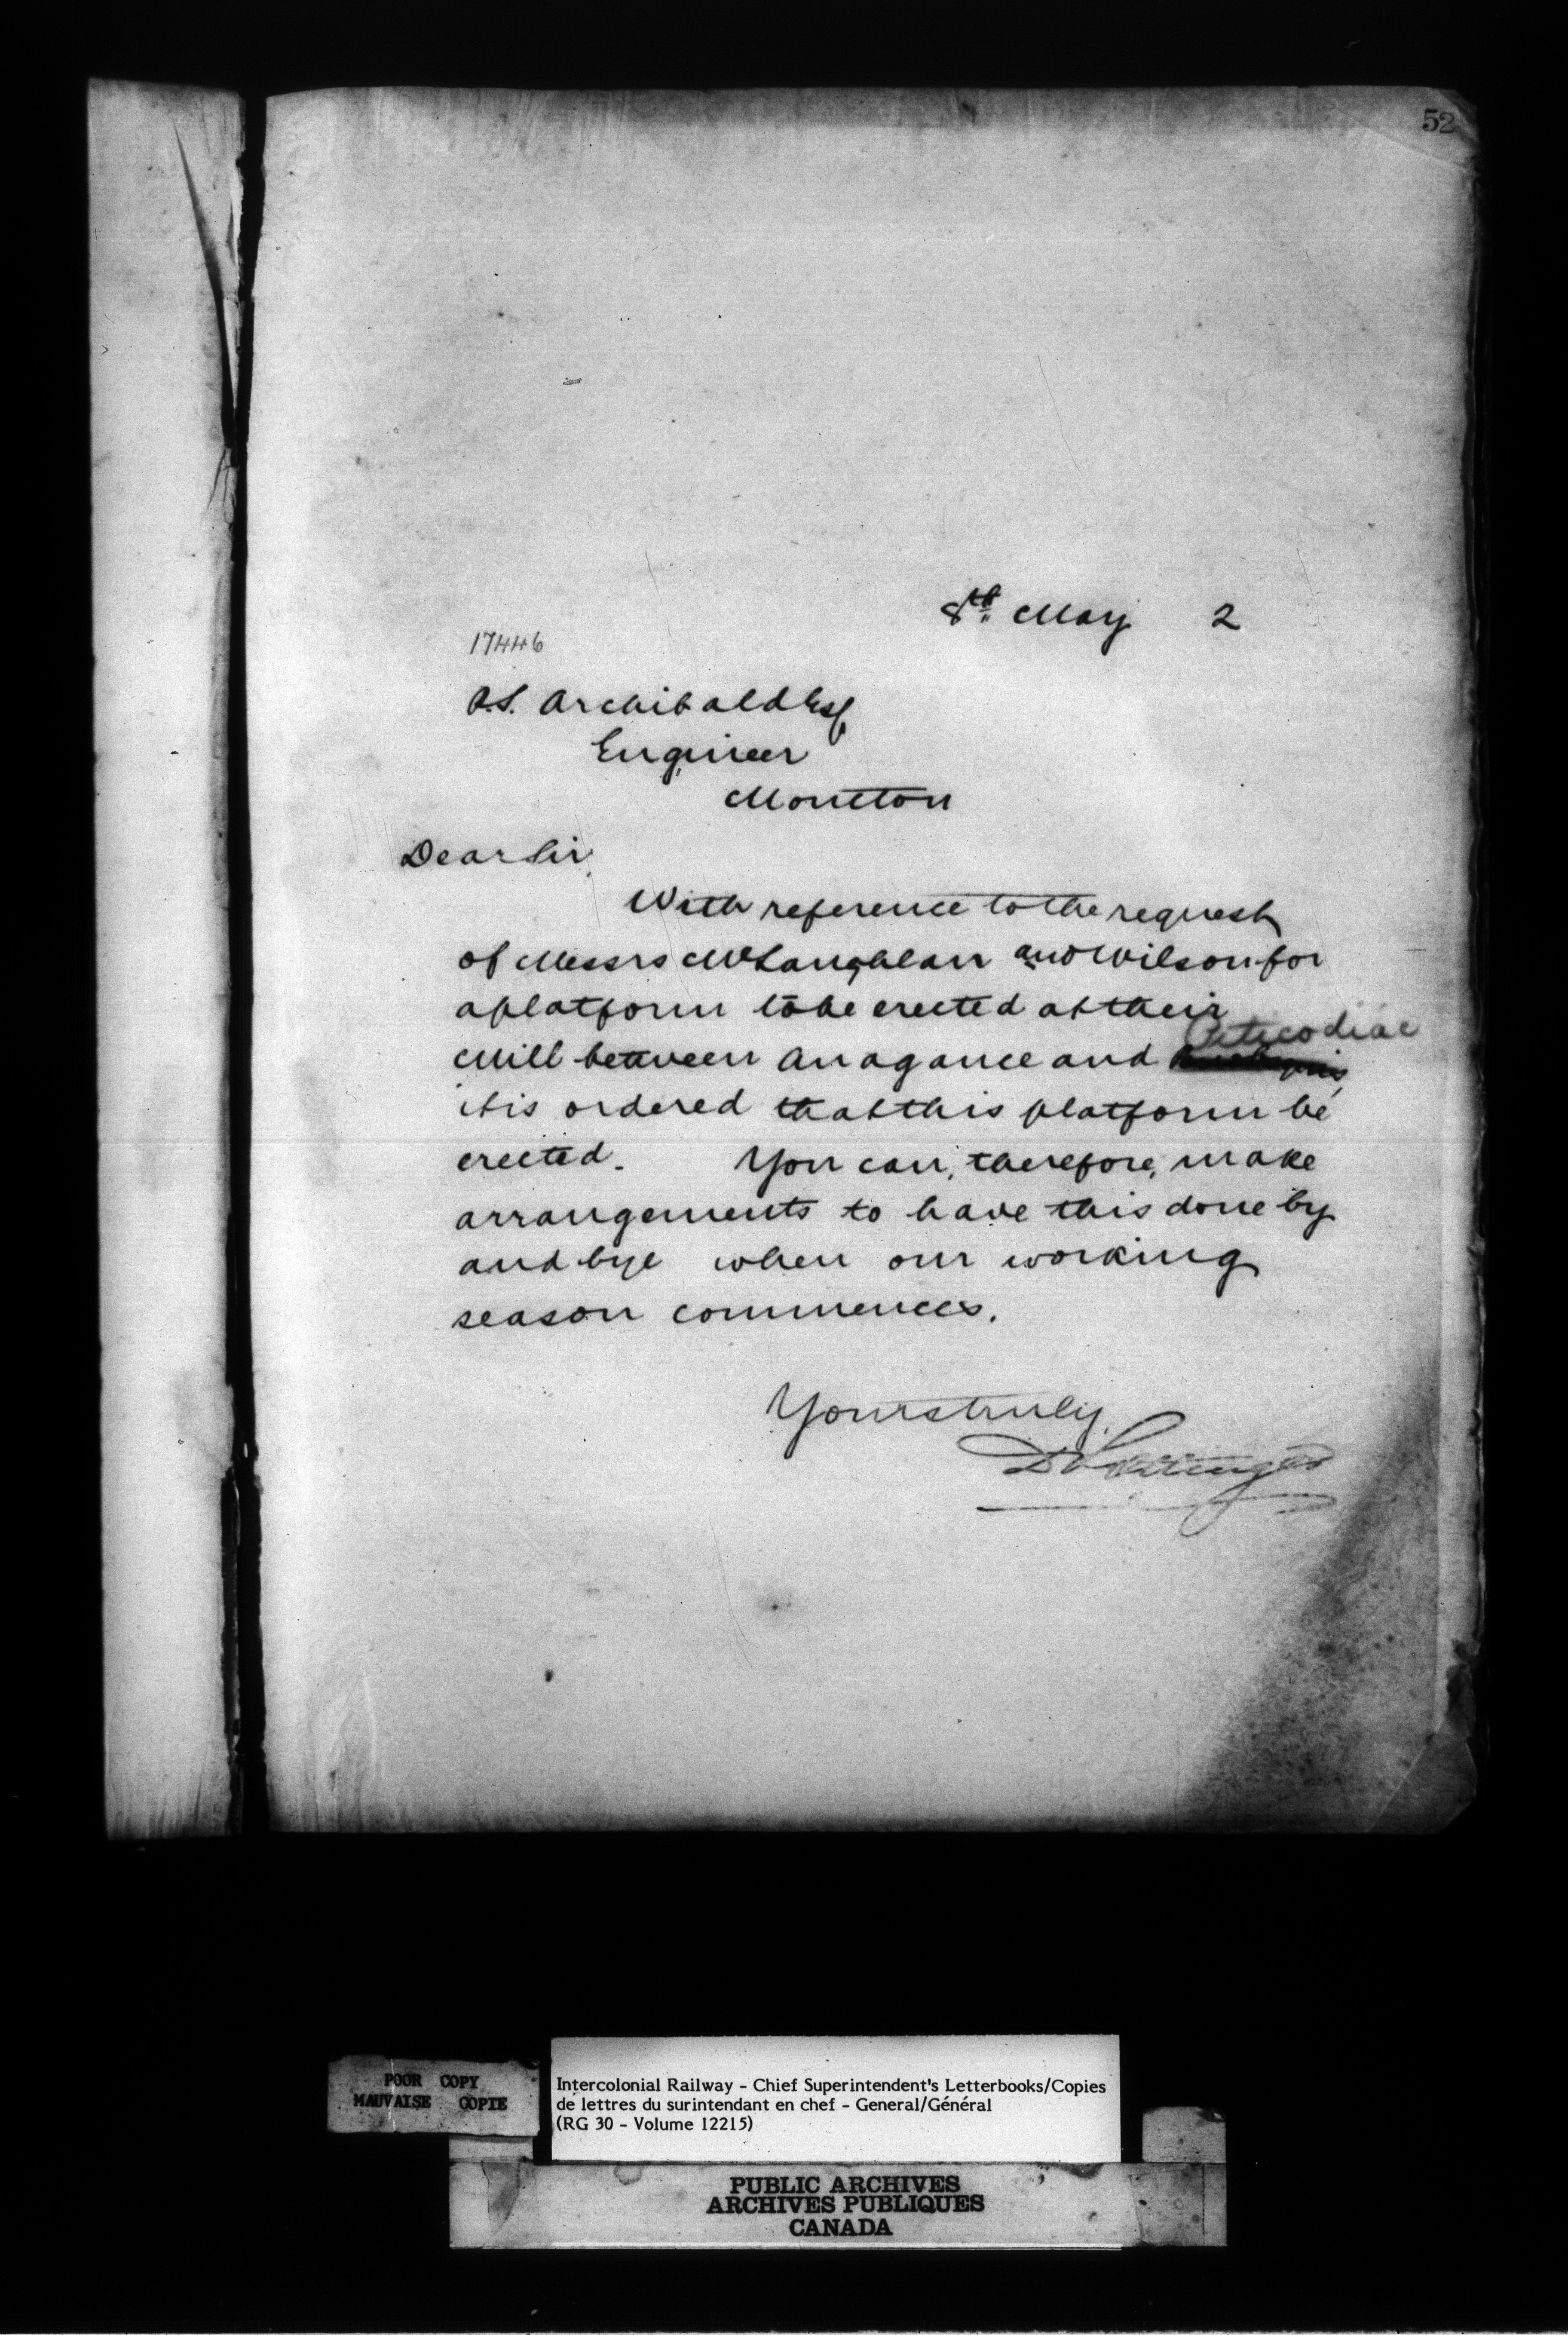 52
8th May 2
17446
P.S. Archibald Esq
Engineer
Moncton
Dear Sir,
With reference to the request
of Messrs McLaughlan and Wilson for
a platform to be erected at their
Mill between Anagance and Peticodiac
it is ordered that this platform be
erected. You can, therefore, make
arrangements to have this done by
and bye when our working
season commences.
Yours truly,
D Pottinger
POOR COPY
MAUVAISE COPIE
Intercolonial Railway - Chief Superintendent's Letterbooks/Copies
de lettres du surintendant en chef - General/Général
(RG 30 - Volume 12215)
PUBLIC ARCHIVES
ARCHIVES PUBLIQUES
CANADA